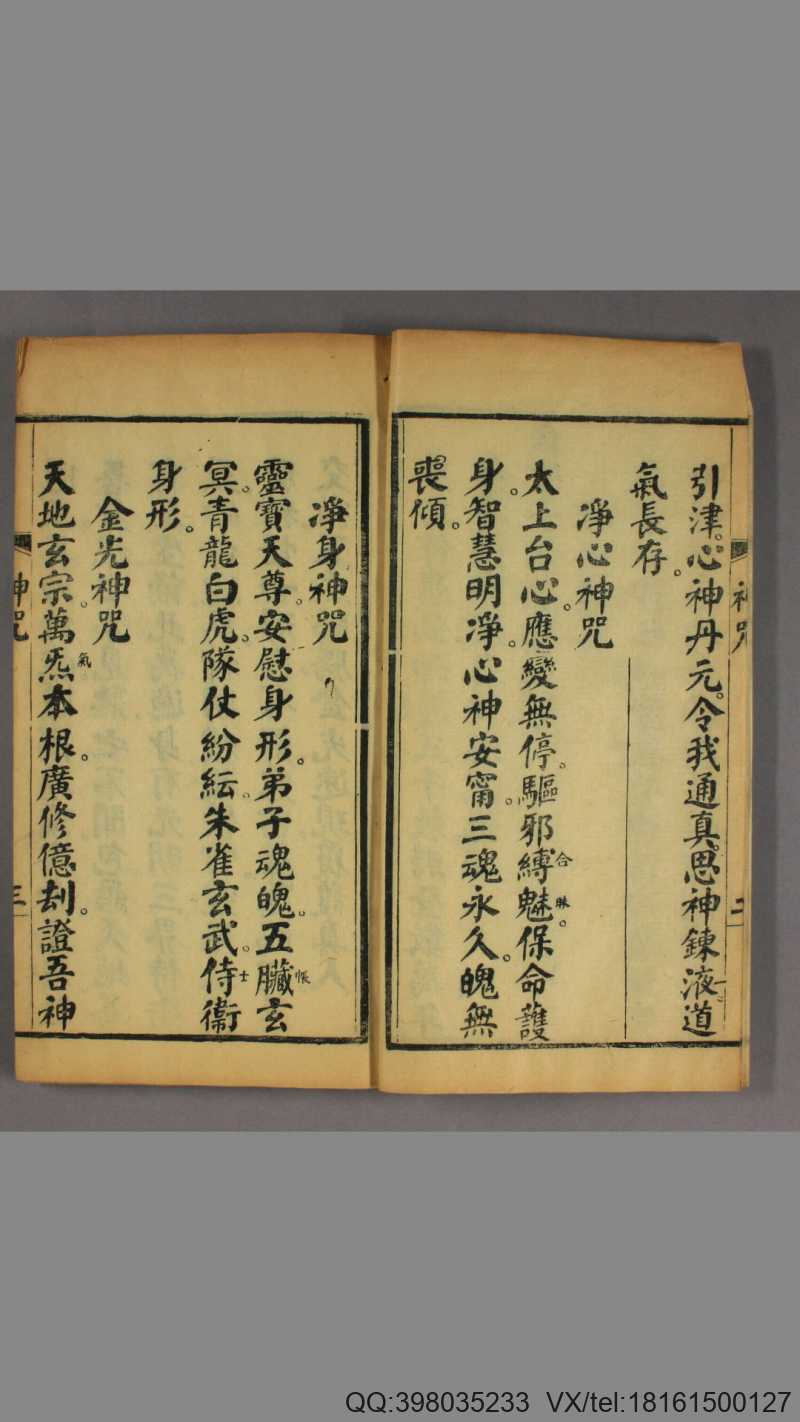 引津。心神丹元。令我通真。思神鍊液。道
氣長存。
淨心神咒
太上台心。應變無停。驅邪縛魅。保命護
合
昧
身。智慧明淨。心神安甯。三魂永久。魄無
喪傾。
神咒
二
淨身神咒
靈寶天尊。安慰身形。弟子魂魄。五臟玄
帳
冥。青龍白虎。隊仗紛紜。朱雀玄武。侍衛
士
身形。
金光神咒
天地玄宗。萬炁本根。廣修億刦。證吾神
氣
神咒
三
QQ:398035233 VX/tel:18161500127